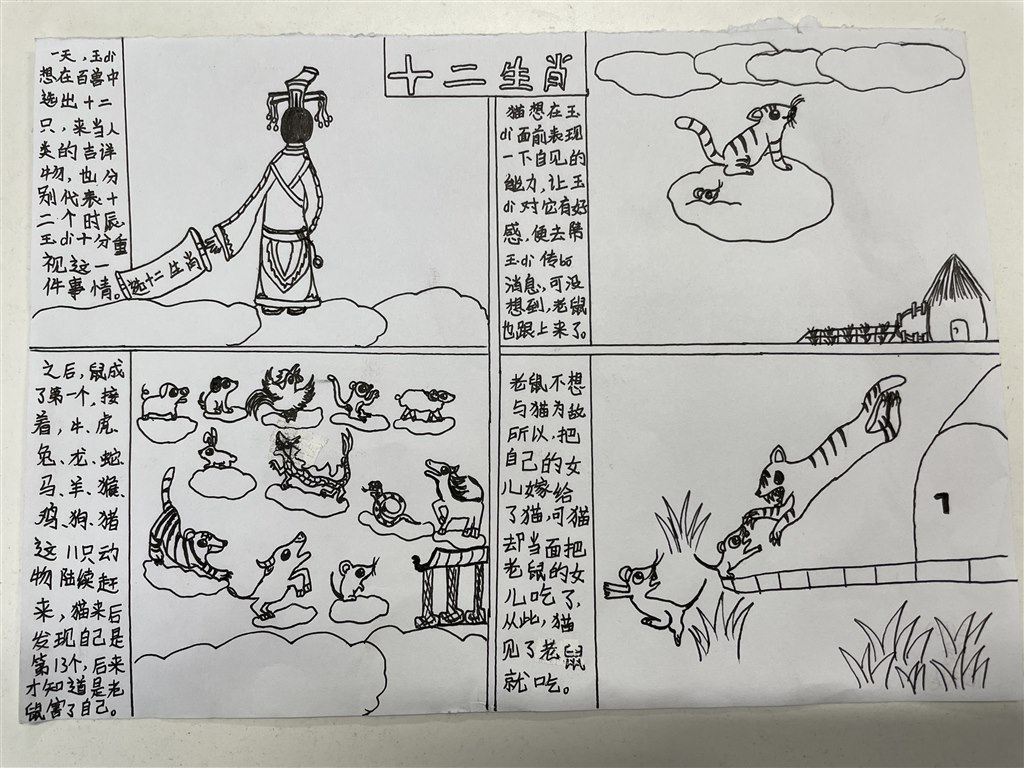 十二生肖
一天，玉di
想在百兽中
选出十二
只，来当人
类的吉详
物，也分
别代表十
二个时辰
玉di十分重
视这一
件事情。
选十二生肖
猫想在玉
di面前表现
一下自见的
能力，让玉
di对它有好
感，便去帮
玉di传
消息，可没
想到，老鼠
也跟上来了。
之后，鼠成
了第一个，接
着，牛、虎、
兔、龙、蛇、
马、羊、猴、
鸡、狗、猪
这11只动
物陆续赶
来，猫来后
发现自己是
第13个，后来
才知道是老
鼠害了自己。
老鼠不想
与猫为敌
所以，把
自己的女
儿嫁给
了猫，可猫
却当面把
老鼠的女
儿吃了，
从此，猫
见了老鼠
就吃。